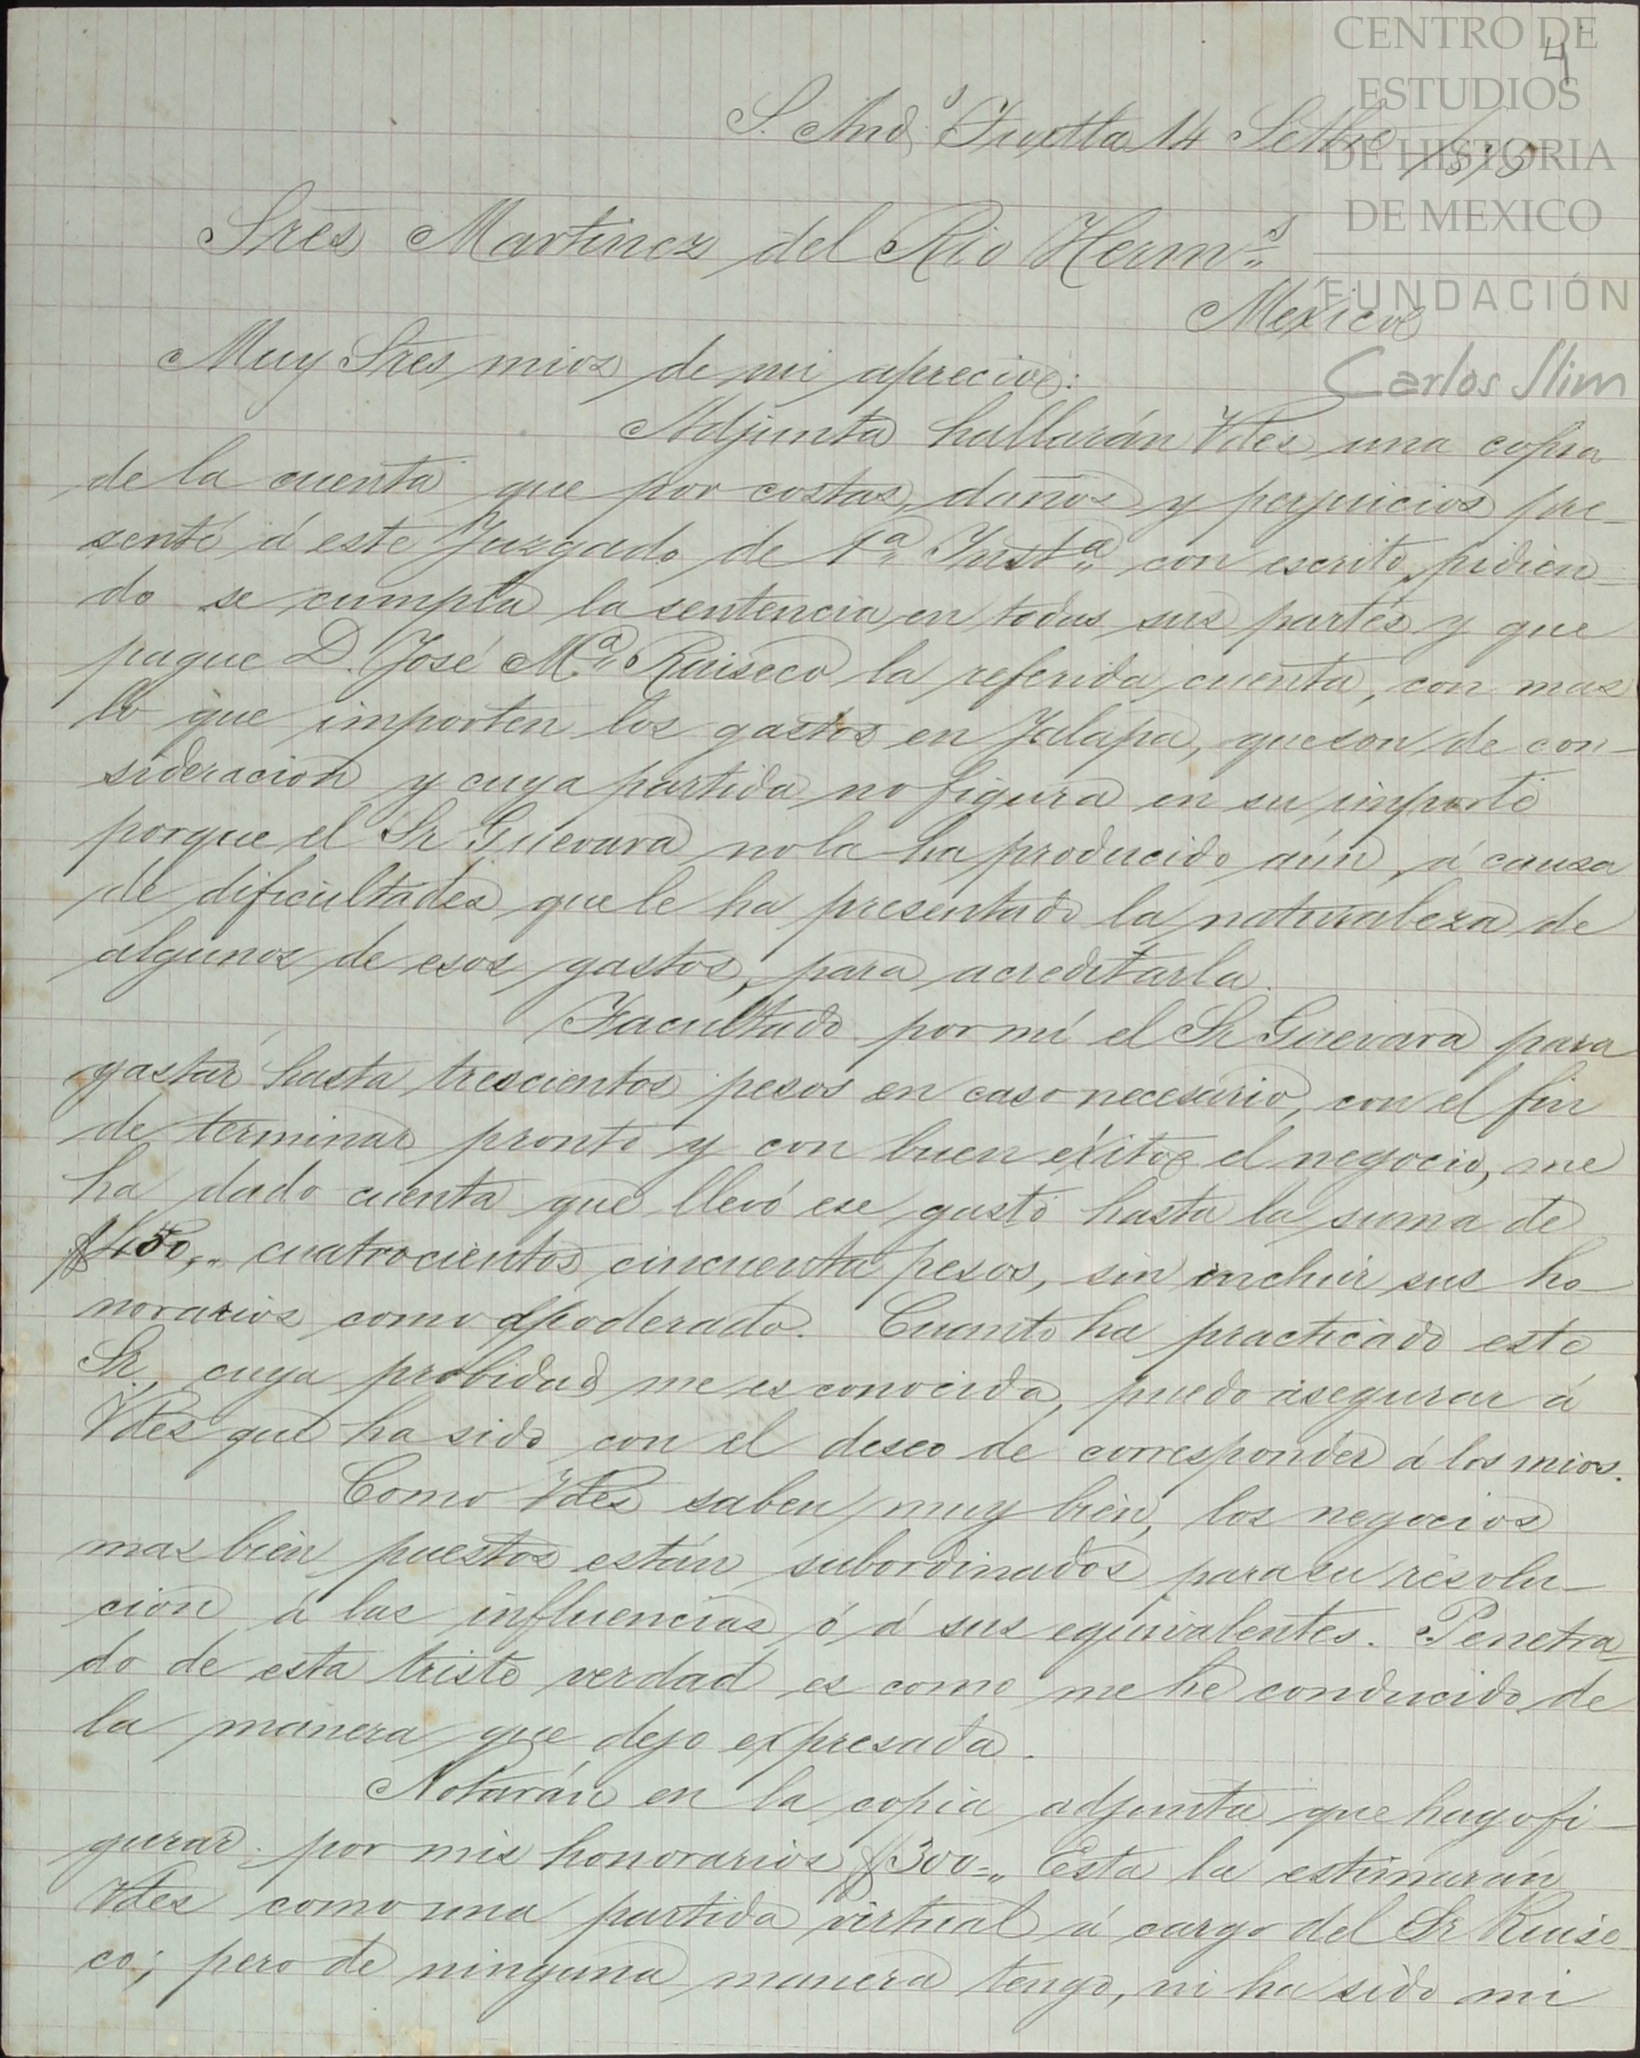 CENTRO DE
ESTUDIOS
DE HISTORIA
DE MEXICO
FUNDACIÓN
Carlos Slim
4
S. And.s Tuxtla 14 Setbre
Sres Martinez del Rio Herm.s
Mexico
Muy Sres mios de mi aprecio:
Adjunta hallarán Vdes una copia
de la cuenta que por costas, daños y perjuicios pre-
senté á este Juzgado de 1.a Inst.a con escrito, pidien-
do se cumpla la sentencia en todas sus partes y que
pague D. José M.a Ruiseco la referida cuenta, con mas
lo que importen los gastos en Jalapa, que son de con-
sideracion y cuya partida no figura en su importe
porque el Sr Guevara no la ha producido aún, á causa
de dificultades que le ha presentado la naturaleza de
algunos de esos gastos, para acreditarla.
Facultado por mí el Sr Guevara para
gastar hasta trescientos pesos en caso necesario, con el fin
de terminar pronto y con buen éxito el negocio, me
ha dado cuenta que llevó ese gasto hasta la suma de
$450,, cuatrocientos cincuenta pesos, sin incluir sus ho-
norarios como apoderado. Cuanto ha practicado este
Sr, cuya probidad me es conocida, puedo asegurar á
Vdes que ha sido con el deseo de corresponder á los mios.
Como Vdes saben muy bien, los negocios
mas bien puestos están subordinados para su resolu-
cion á las influencias ó á sus equivalentes. Penetra-
do de esta triste verdad es como me he conducido de
la manera que dejo expresada.
Notarán en la copia adjunta que hago fi-
gurar por mis honorarios $300-,, Esta la estimarán
Vdes como una partida virtual á cargo del Sr Ruise-
co; pero de ninguna manera tengo, ni ha sido mi